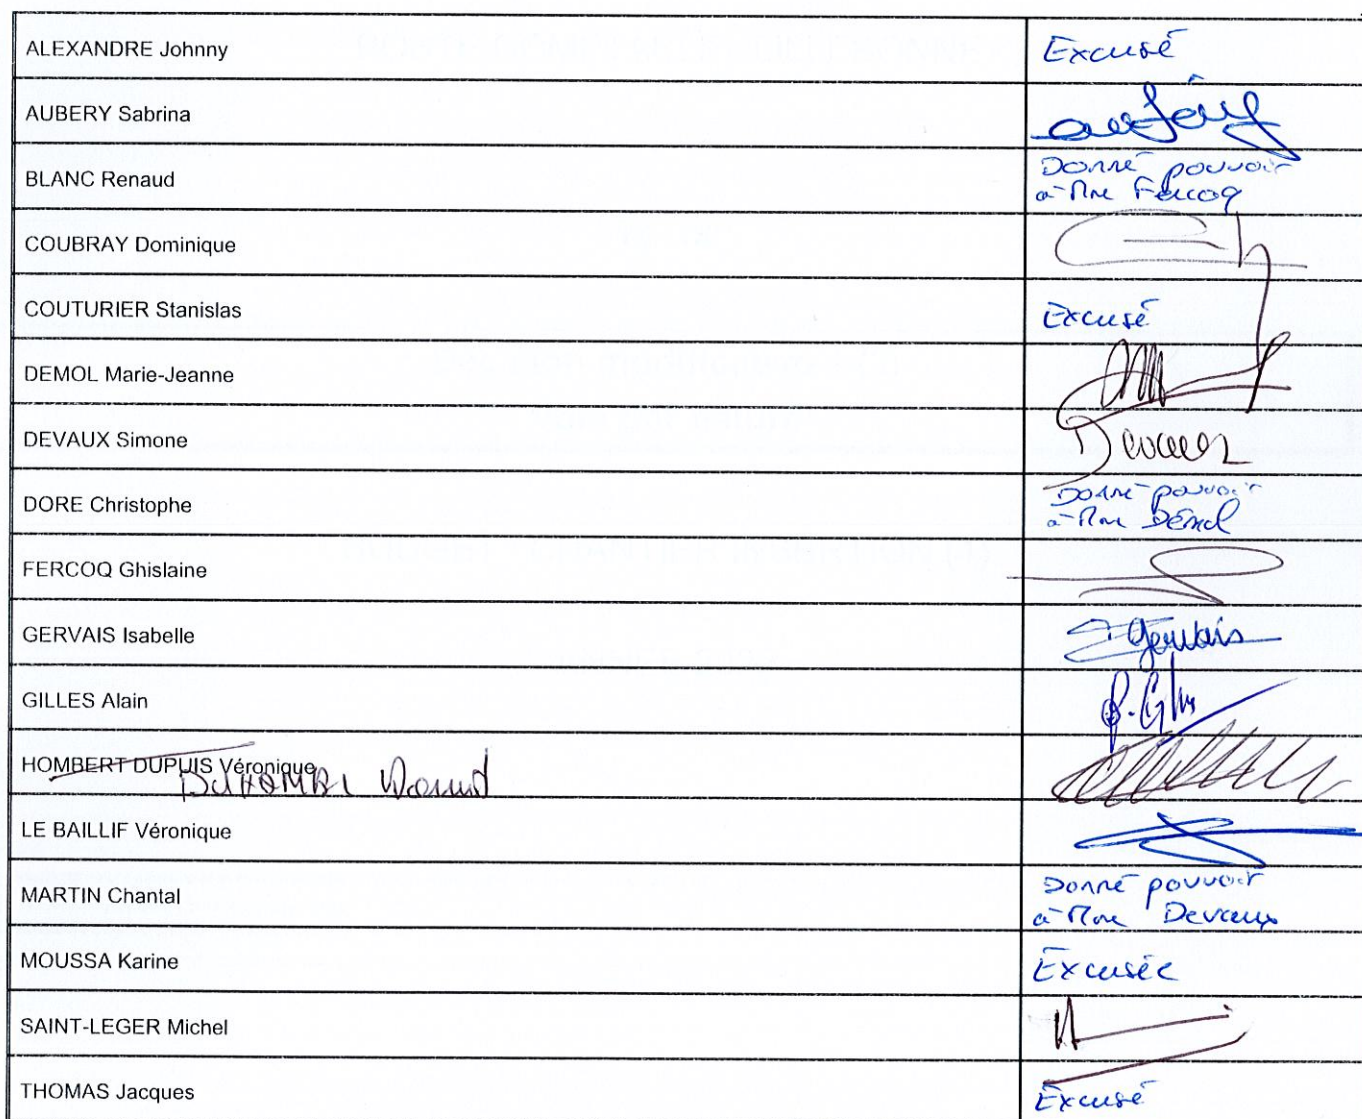 ALEXANDRE Johnny Excusé
AUBERY Sabrina aubéry
BLANC Renaud Donné pouvoir
à Mme Fercoq
COUBRAY Dominique
COUTURIER Stanislas Excusé
DEMOL Marie-Jeanne
DEVAUX Simone Devaux
DORE Christophe Donné pouvoir
à Mme Démol
FERCOQ Ghislaine
GERVAIS Isabelle I Gervais
GILLES Alain A. Gilles
HOMBERT DUPUIS Véronique
LE BAILLIF Véronique
MARTIN Chantal Donné pouvoir
à Mme Devaux
MOUSSA Karine Excusée
SAINT-LEGER Michel
THOMAS Jacques Excusé